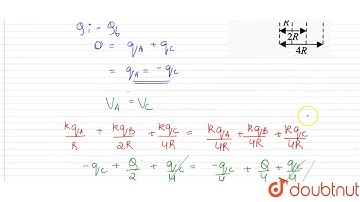 Qi - Qf
0 = qA + qC
= qA = -qC
VA = VC
kqA/R + kqB/2R + kqC/4R = kqA/4R + kqB/4R + kqC/4R
-qC + Q/2 + qC/4 = -qC/4 + Q/4 + qC/4
R
2R
4R
doubtnut